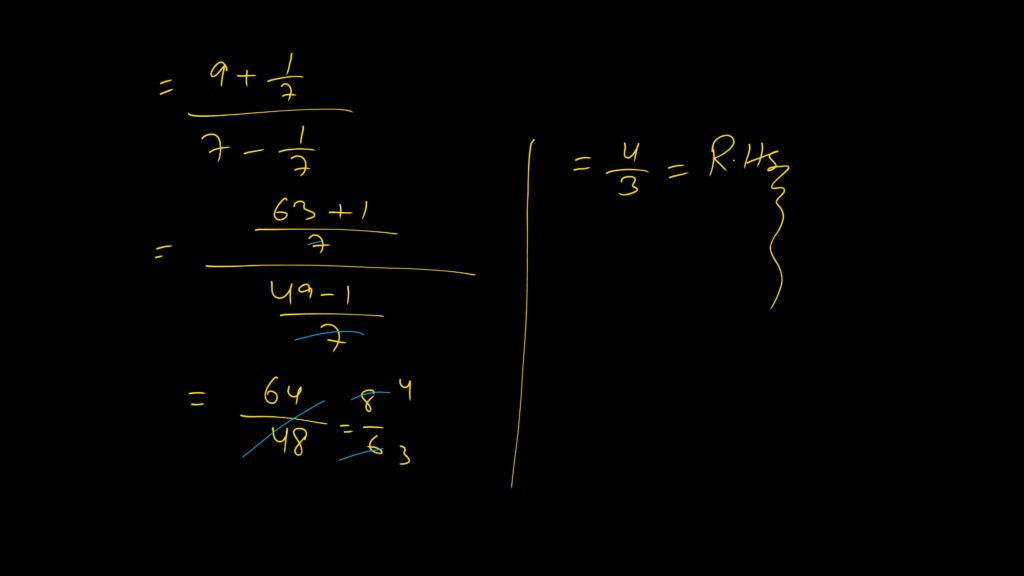 = (9 + 1/7) / (7 - 1/7)
= ((63 + 1)/7) / ((49 - 1)/7)
= 64/48 = 8/6 4 3
= 4/3 = R.HS